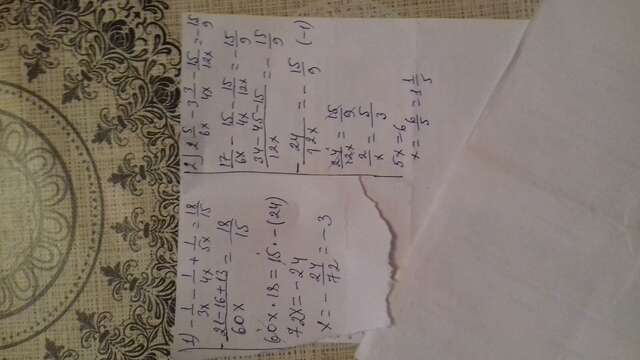 1) -1/3x - 1/4x + 1/5x = 18/15
-21-16+13/60x = 18/15
60x·18=15·-(24)
72x=-24
x=-24/72=-3
2) 2 5/6x - 3 3/4x - 15/12x = -15/9
17/6x - 15/4x - 15/12x = -15/9
34-45-15/12x = -15/9
-24/12x = -15/9 (-1)
24/12x = 15/9
2/x = 5/3
5x=6
x=6/5=1 1/5